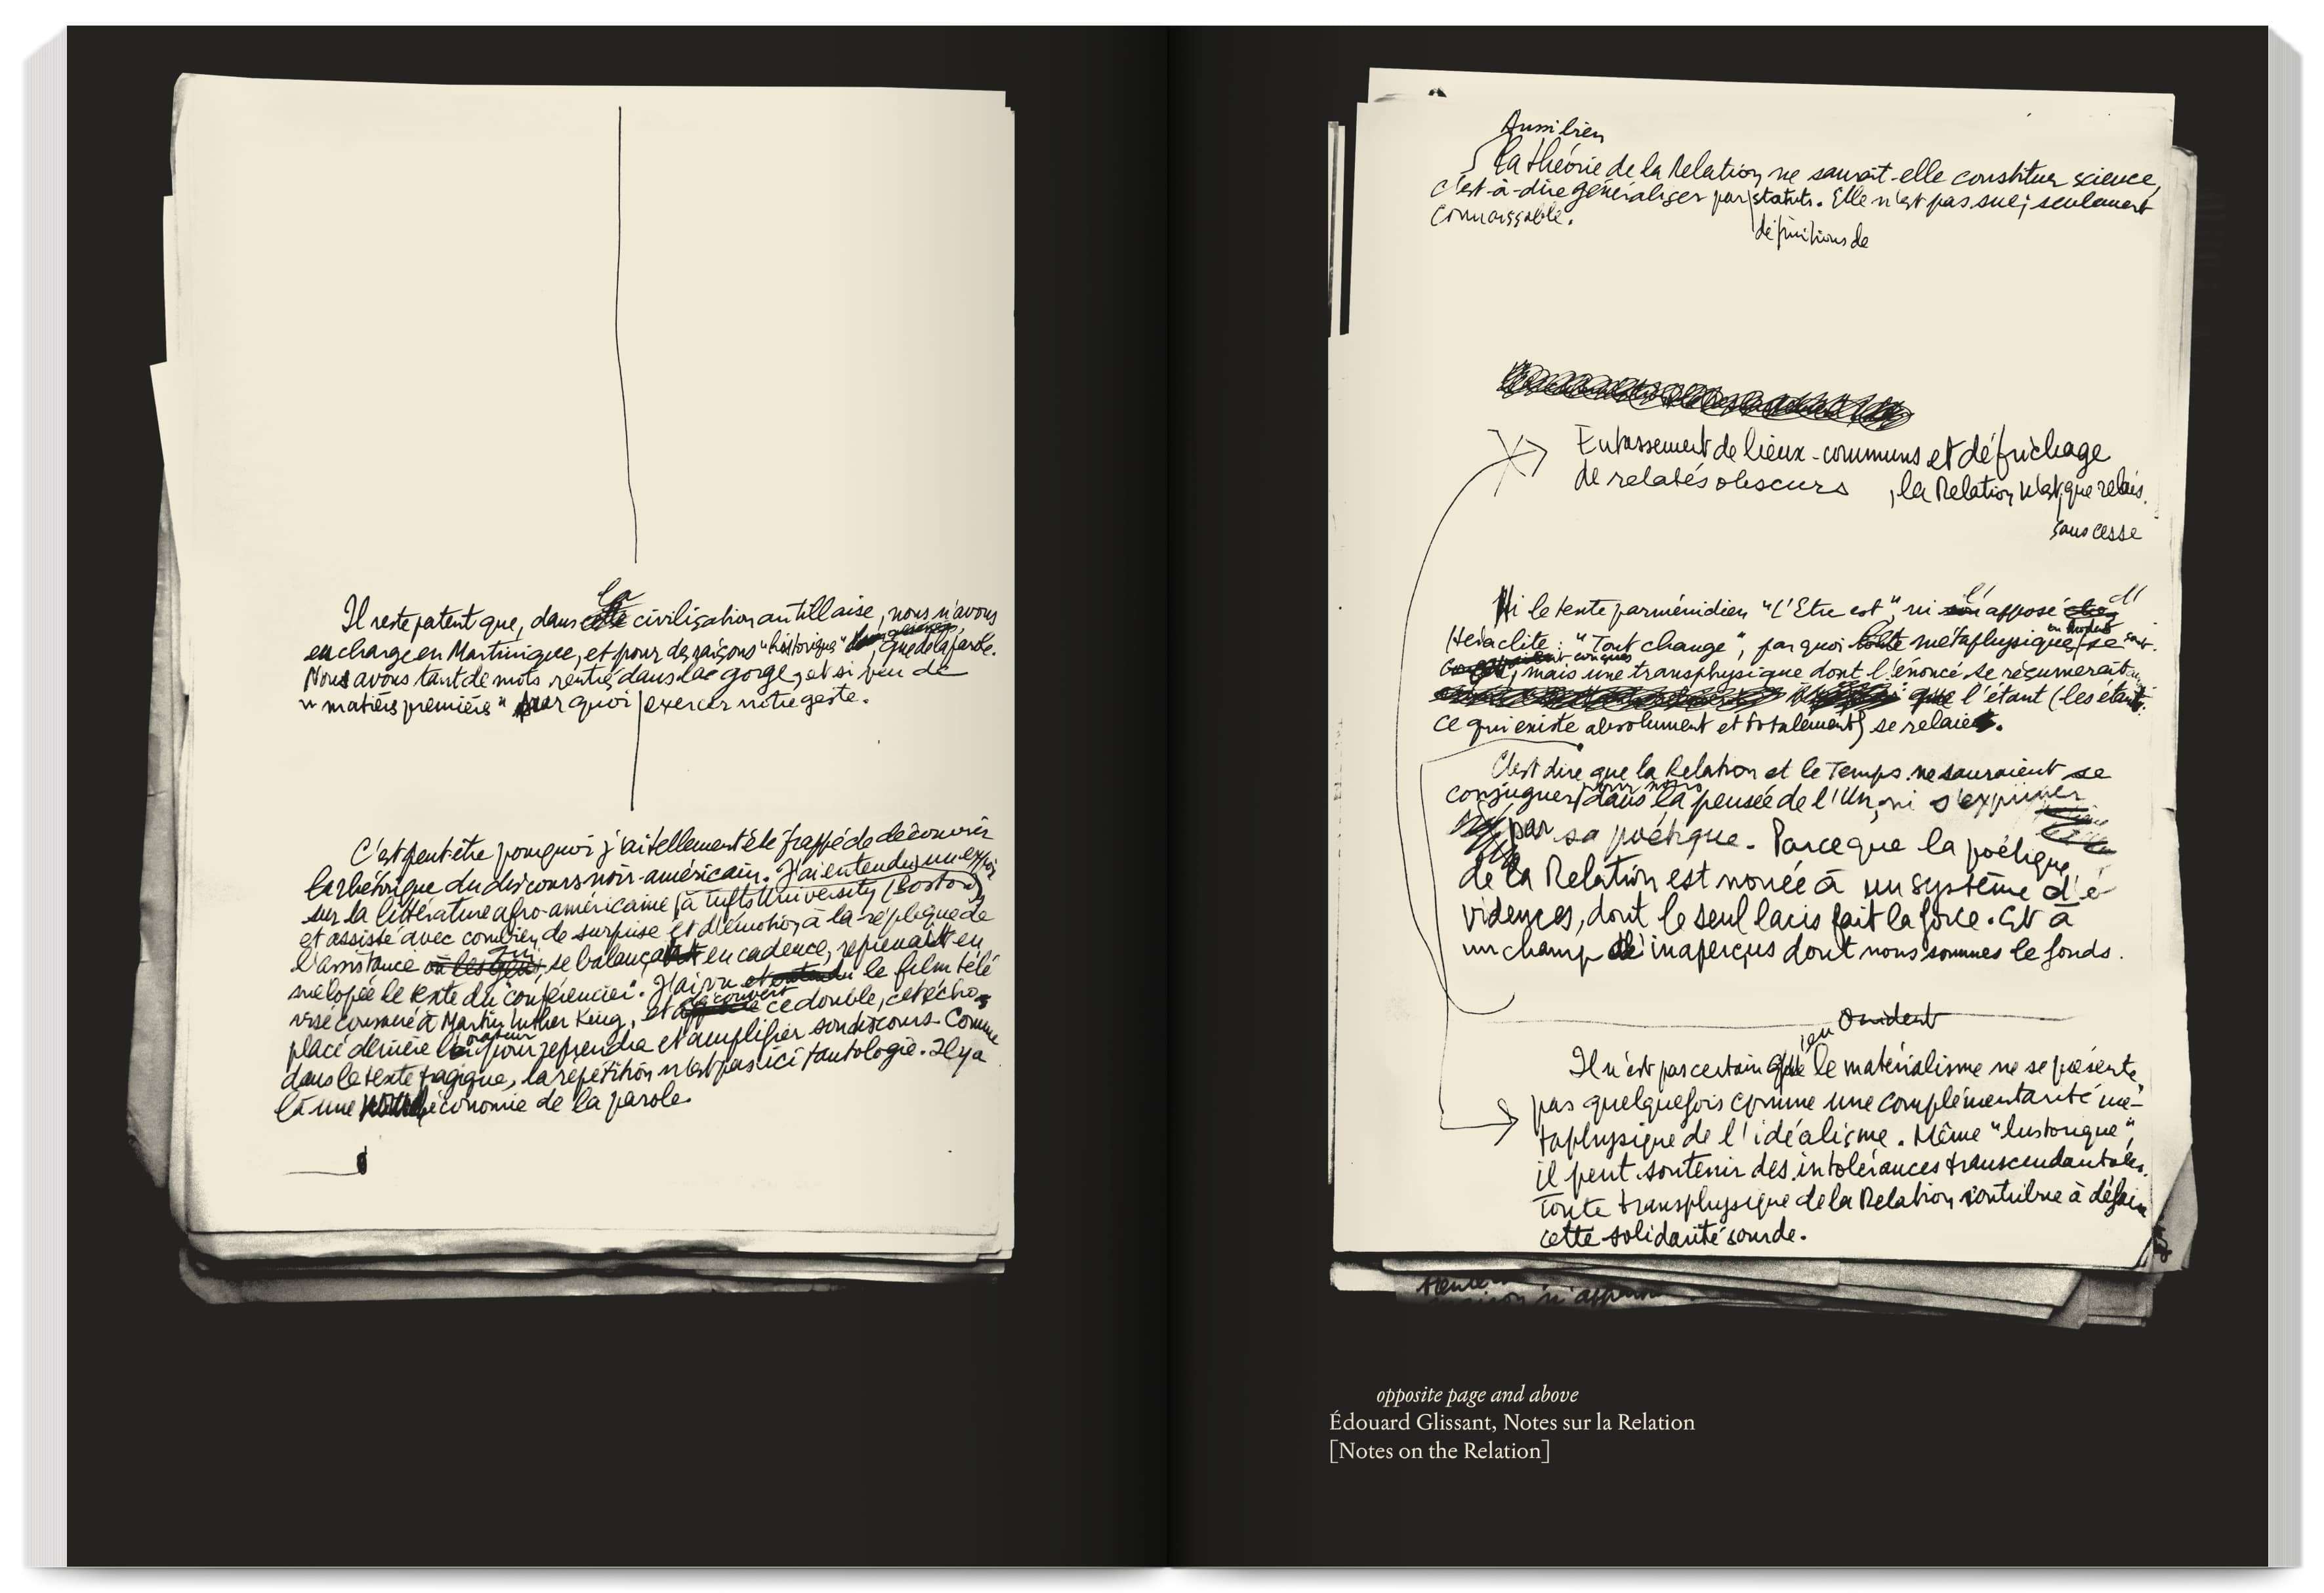 la
Il reste patent que, dans civilisation antillaise, nous n'avons
en charge en Martinique, et pour des raisons "historiques", que de la parole.
Nous avons tant de mots rentrés dans la gorge, et si peu de
"matières premières" par quoi exercer notre geste.
C'est peut-être pourquoi j'ai tellement été frappé de découvrir
la rhétorique du discours noir-américain. J'ai entendu un exposé
sur la littérature afro-américaine (à Tufts University (Boston)
et assisté avec combien de surprise et d'émotion, à la réplique de
l'assistance qui, se balançant en cadence, reprenait en
mélopée le texte du "conférencier". J'ai vu et entendu le film télé
visé consacré à Martin Luther King, et découvert ce double, cet écho
placé derrière l'orateur pour reprendre et amplifier son discours. Comme
dans le texte tragique, la répétition n'est pas ici tautologie. Il y a
là une économie de la parole.
Aussi bien
la théorie de la Relation ne saurait-elle constituer science,
c'est-à-dire généraliser par statuts. Elle n'est pas sue; seulement
connaissable.
définitions de
Entassement de lieux-communs et défrichage
de relatés obscurs, la Relation n'est que relais.
sans cesse
Ni le texte parménidien "L'Etre est", ni l'opposé d'
Héraclite : "Tout change", par quoi métaphysique se
conçues, mais une transphysique dont l'énoncé se résumerait:
que l'étant (les étants:
ce qui existe absolument et totalement) se relaie.
C'est dire que la Relation et le Temps ne sauraient se
conjuguer pour nous dans la pensée de l'Un, ni s'exprimer
par sa poétique. Parce que la poétique
de la Relation est nouée à un système d'é
vidences, dont le seul lacis fait la force. Et à
un champ d'inaperçus dont nous sommes le fonds.
Occident
en
Il n'est pas certain que le matérialisme ne se présente
pas quelquefois comme une complémentarité mé-
taphysique de l'idéalisme. Même "historique",
il peut soutenir des intolérances transcendantales.
Toute transphysique de la Relation contribue à défaire
cette solidarité sourde.
opposite page and above
Édouard Glissant, Notes sur la Relation
[Notes on the Relation]